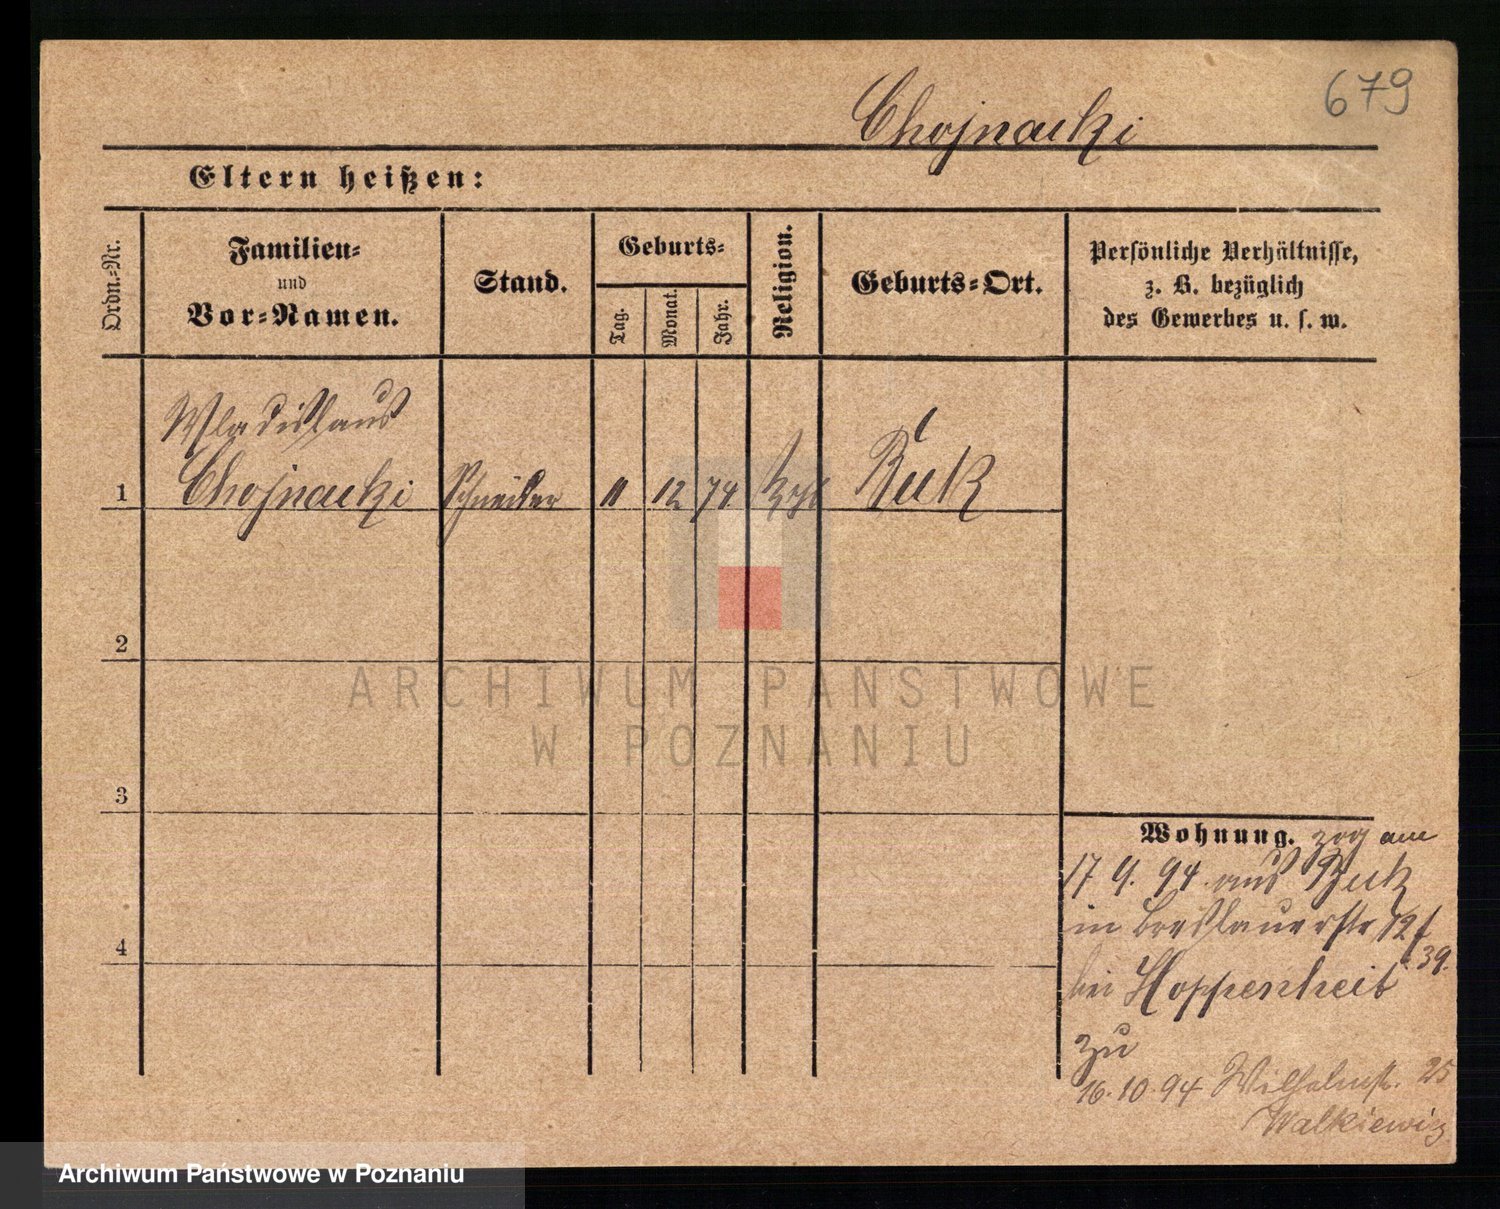 Chojnacki
679
Eltern heißen:
Ordn.-Nr.
Familien-
und
Vor-Namen.
Stand.
Geburts-
Tag.
Monat.
Jahr.
Religion.
Geburts-Ort.
Persönliche Verhältnisse,
z. B. bezüglich
des Gewerbes u. s. w.
Wladislaus
1 Chojnacki Schneider 11 12 74 kath Buk
2
3
4
Wohnung. zog am
17 9. 94. aus Buk
in Breslauerstr 12/
39.
bei Hoppenheit
zu
16.10.94 Wilhelmstr. 25
Walkiewicz
ARCHIWUM PAŃSTWOWE
W POZNANIU
Archiwum Państwowe w Poznaniu